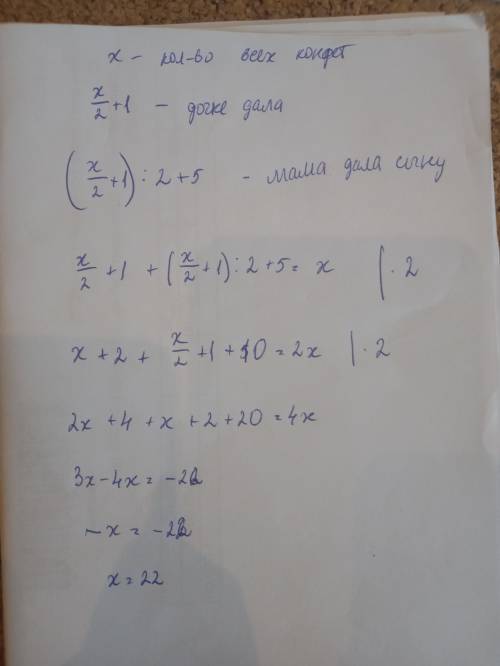 x – кол-во всех конфет
x/2 + 1 – дочке дала
(x/2 + 1) : 2 + 5 – мама дала сыну
x/2 + 1 + (x/2 + 1) : 2 + 5 = x | · 2
x + 2 + x/2 + 1 + 10 = 2x | · 2
2x + 4 + x + 2 + 20 = 4x
3x – 4x = – 22
– x = – 22
x = 22